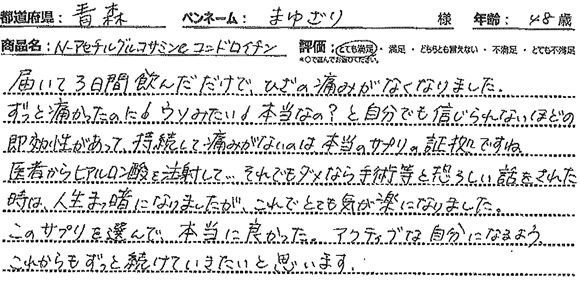 都道府県： 青森 ペンネーム： まゆせり 様 年齢： 48歳
商品名： N-アセチルグルコサミン&コンドロイチン 評価： とても満足 ・ 満足 ・ どちらとも言えない ・ 不満足 ・ とても不満足
*○で囲んでお選びください。
届いて3日間飲んだだけで、ひざの痛みがなくなりました。
ずっと痛かったのに！ウソみたい！本当なの？と自分でも信じられないほどの
即効性があって、持続して痛みがないのは本当のサプリの証拠ですね
医者からヒアルロン酸を注射して…それでもダメなら手術等と恐ろしい話をされた
時は、人生まっ暗になりましたが、これでとても気が楽になりました。
このサプリを選んで、本当に良かった。アクティブな自分になるよう、
これからもずっと続けていきたいと思います。